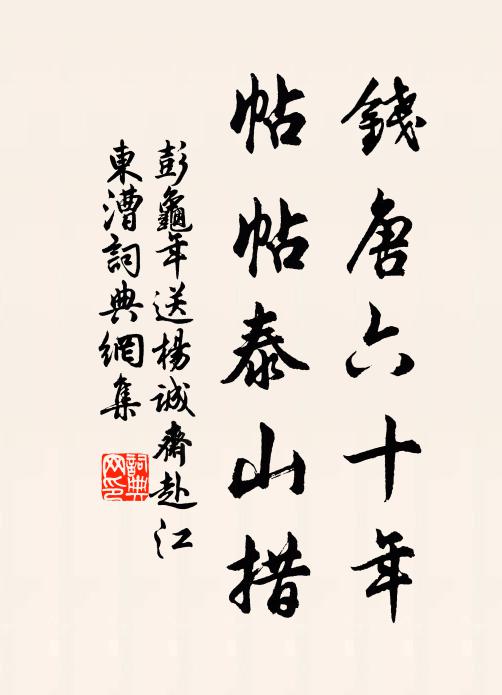 錢唐六十年
帖帖泰山措
彭龜年送楊誠齋赴江
東漕詞典網集
詞典
网印